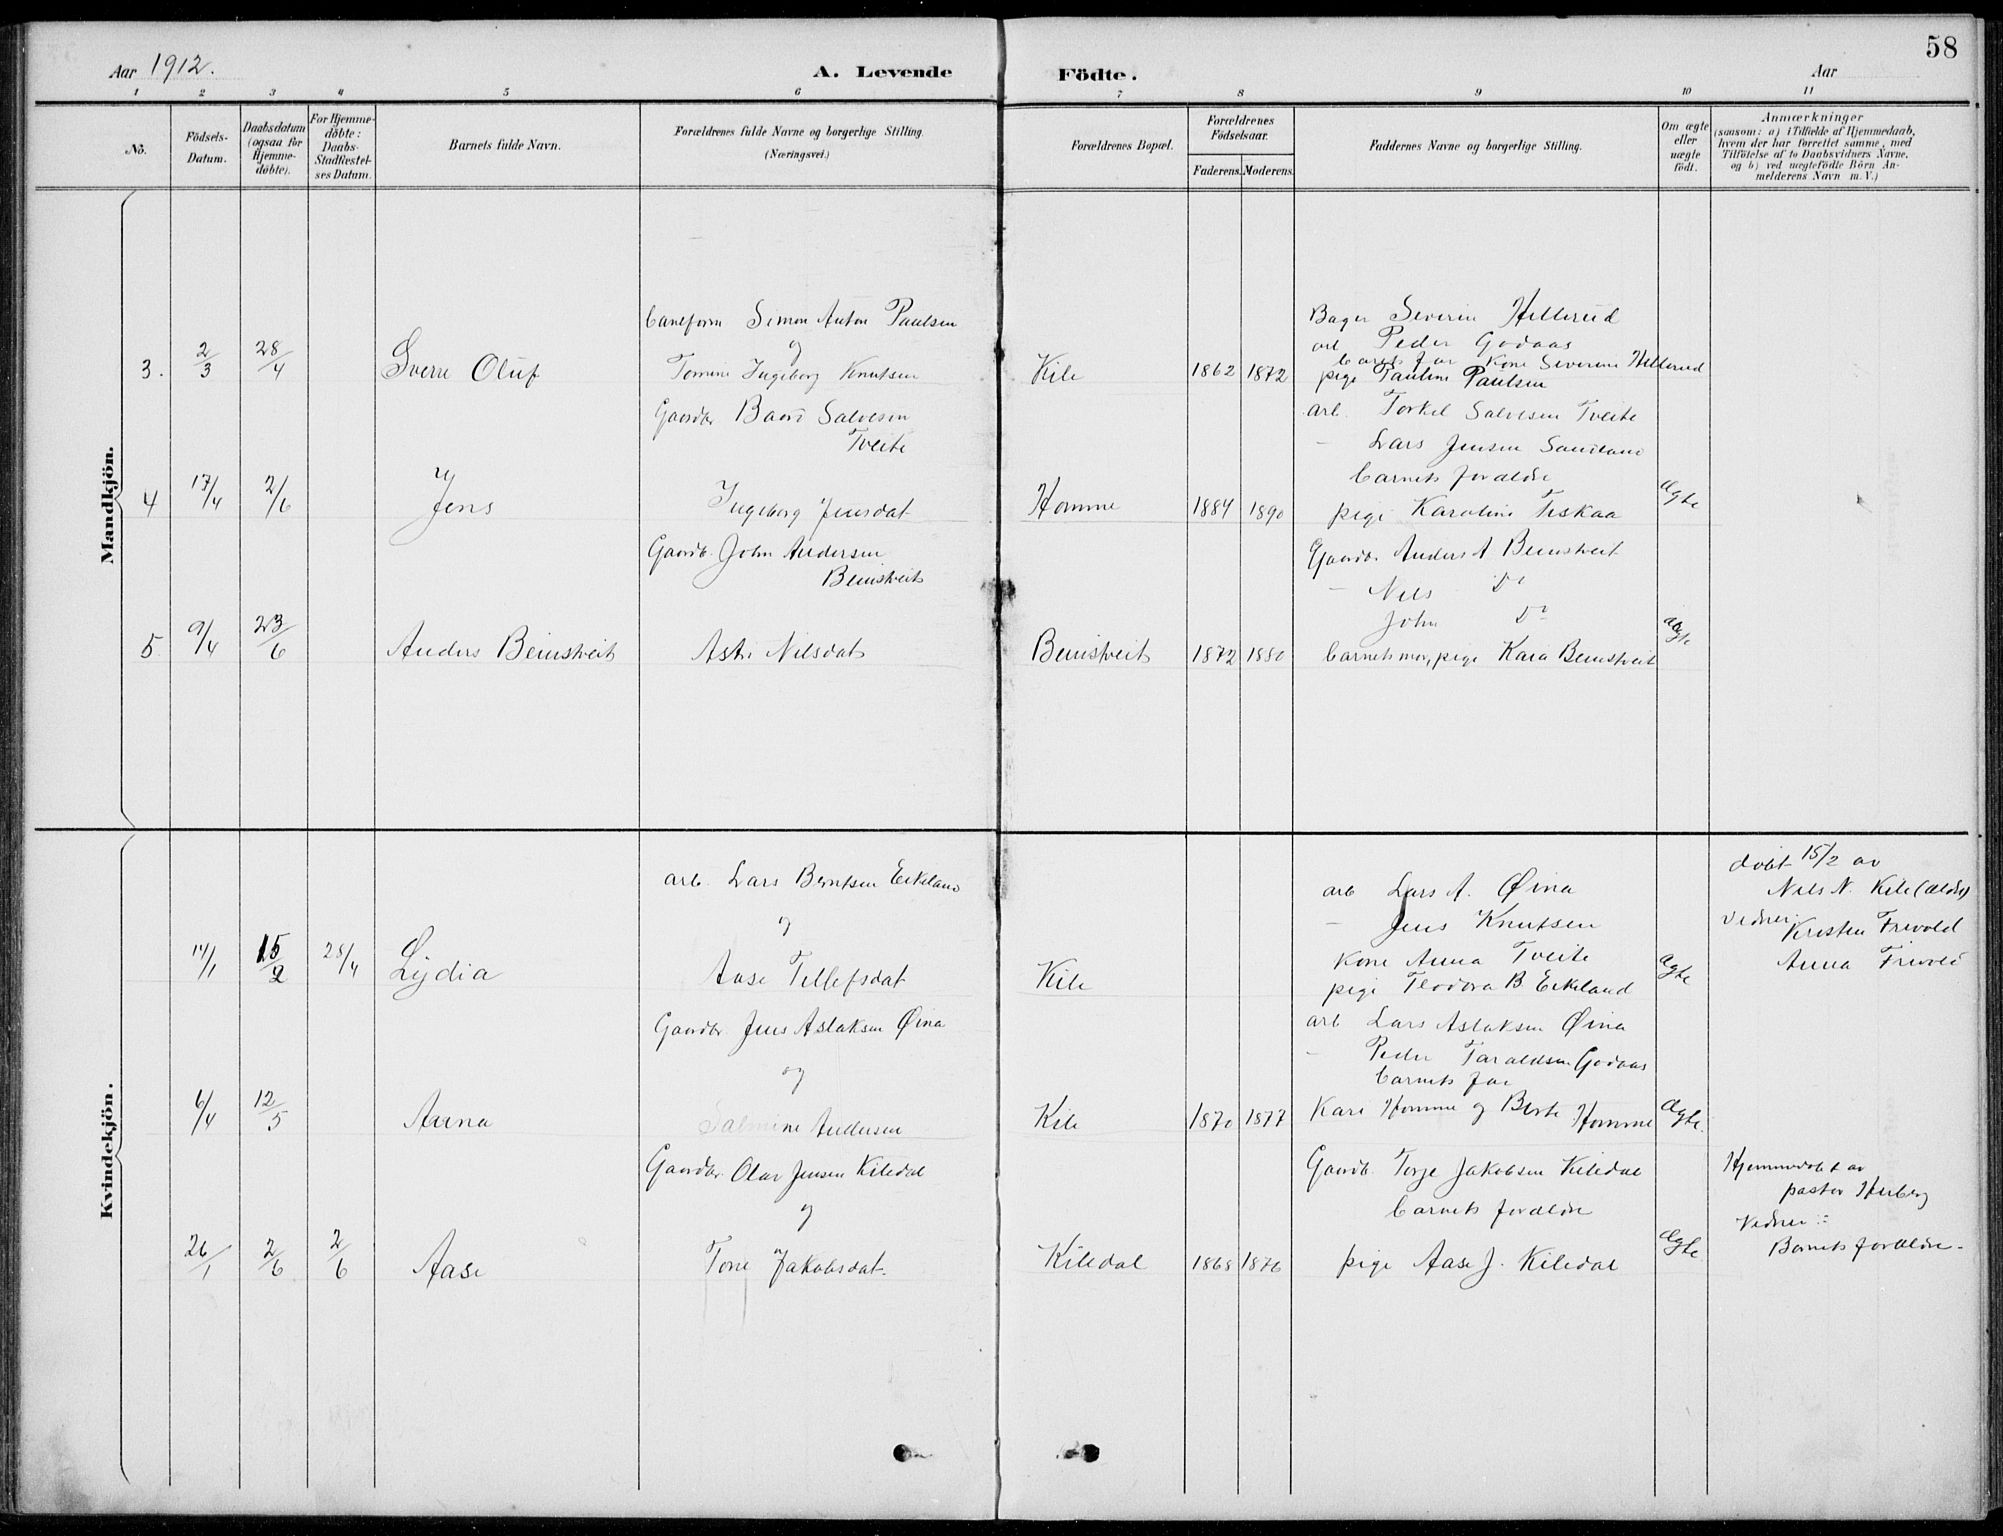 58
Aar 1912.
A. Levende Födte.
Aar
1 2 3 4 5 6 7 8 9 10 11
Nō.
Födsels-Datum.
Daabsdatum (ogsaa for Hjemme-döbte).
For Hjemme-döbte: Daabs-Stadfæstel-ses Datum.
Barnets fulde Navn.
Forældrenes fulde Navne og borgerlige Stilling.
(Næringsvei.)
Forældrenes Bopæl.
Forældrenes Födselsaar.
Faderens. Moderens.
Faddernes Navne og borgerlige Stilling.
Om ægte eller uægte födt.
Anmærkninger
(saasom: a) i Tilfælde af Hjemmedaab,
hvem der har forrettet samme, med
Tilföielse af to Daabsvidners Navne,
og b) ved uægtefödte Börn An-
melderens Navn m. V.)
Mandkjön.
3. 2/3 28/4 Sverre Oluf
Simon Anton Paulsen
og
Tomine Ingeborg Knutsen
Kile 1862 1872
Bager Severin Hillerud
arb Peder Godaas
barnets far Kone Severine Hillerud
pige Pauline Paulsen
4 17/4 2/6 Jens
Gaardbr Baard Salvesen
Tveite
Ingeborg Jensdat
Homme 1884 1890
arb. Torkel Salvesen Tveite
– Lars Jensen Sandland
barnets forældre
pige Karoline Fiskaa
Ægte
5 9/4 23/6 Anders Beinstveit
Gaardb. John Andersen
Beinstveit
Astri Nilsdat
Beinstveit 1872 1880
Gaardbr Anders A Beinstveit
– Nils Do
John Do
barnets mor, pige Kara Beinstveit
ægte
Kvindekjön.
14/1 15/2 28/4 Lydia
arb. Lars Berntsen Eikeland
og
Aase Tellefsdat
Kile
arb Lars A. Øina
– Jens Knutsen
Kone Anna Tveite
pige Teodora B. Eikeland
Ægte
døbt 15/2 av
Nils N. Kile (ældre)
Vidner:
Kristen Frivold
Anna Frivold
6/4 12/5 Anna
Gaardbr. Jens Aslaksen Øina
og
Salmine Andersen
Kile 1870 1877
arb Lars Aslaksen Øina
– Peder Taraldsen Godaas
barnets far
Kari Homme og Berte Homme
Ægte.
26/1 2/6 2/6 Aase
Gaardbr. Olav Jensen Kiledal
og
Tone Jakobsdat.
Kiledal 1868 1876
Gaardb. Torje Jakobsen Kiledal
barnets forældre
pige Aase J. Kiledal
Ægte
Hjemmedøbt av
pastor
Vidner:
Barnets forældre.